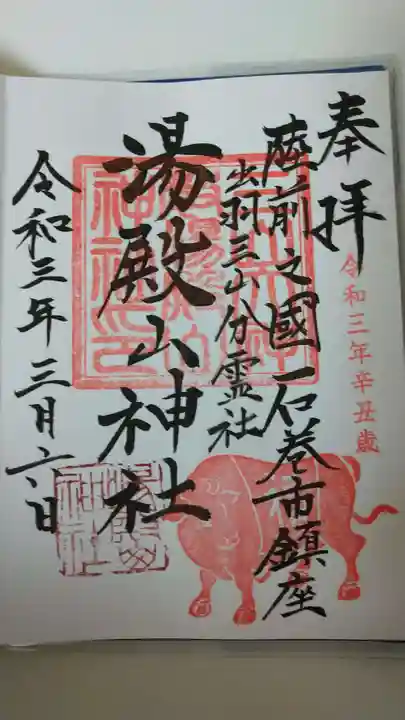 奉拝
令和三年辛丑歳
陸前之國 石巻市鎮座
出羽三山分霊社
湯殿山神社
令和三年三月六日